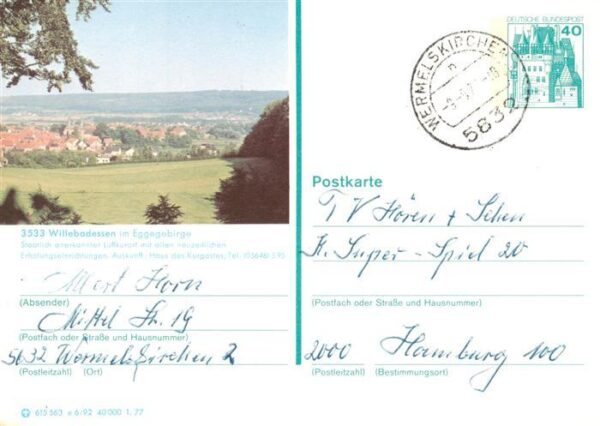 3533 Willebadessen im Eggegebirge
Staatlich anerkannter Luftkurort mit allen neuzeitlichen
Erholungseinrichtungen. Auskunft: Haus des Kurgastes, Tel. (05646) 595
Albert Horn
(Absender)
Mittel Str. 19
(Postfach oder Straße und Hausnummer)
5632 Wermelskirchen 2
(Postleitzahl) (Ort)
615 563 a 6/92 40 000 1. 77
DEUTSCHE BUNDESPOST
40
WERMELSKIRCHEN
5632
Postkarte
TV Hören + Sehen
Super-Spiel 20
(Postfach oder Straße und Hausnummer)
2000 Hamburg 100
(Postleitzahl) (Bestimmungsort)